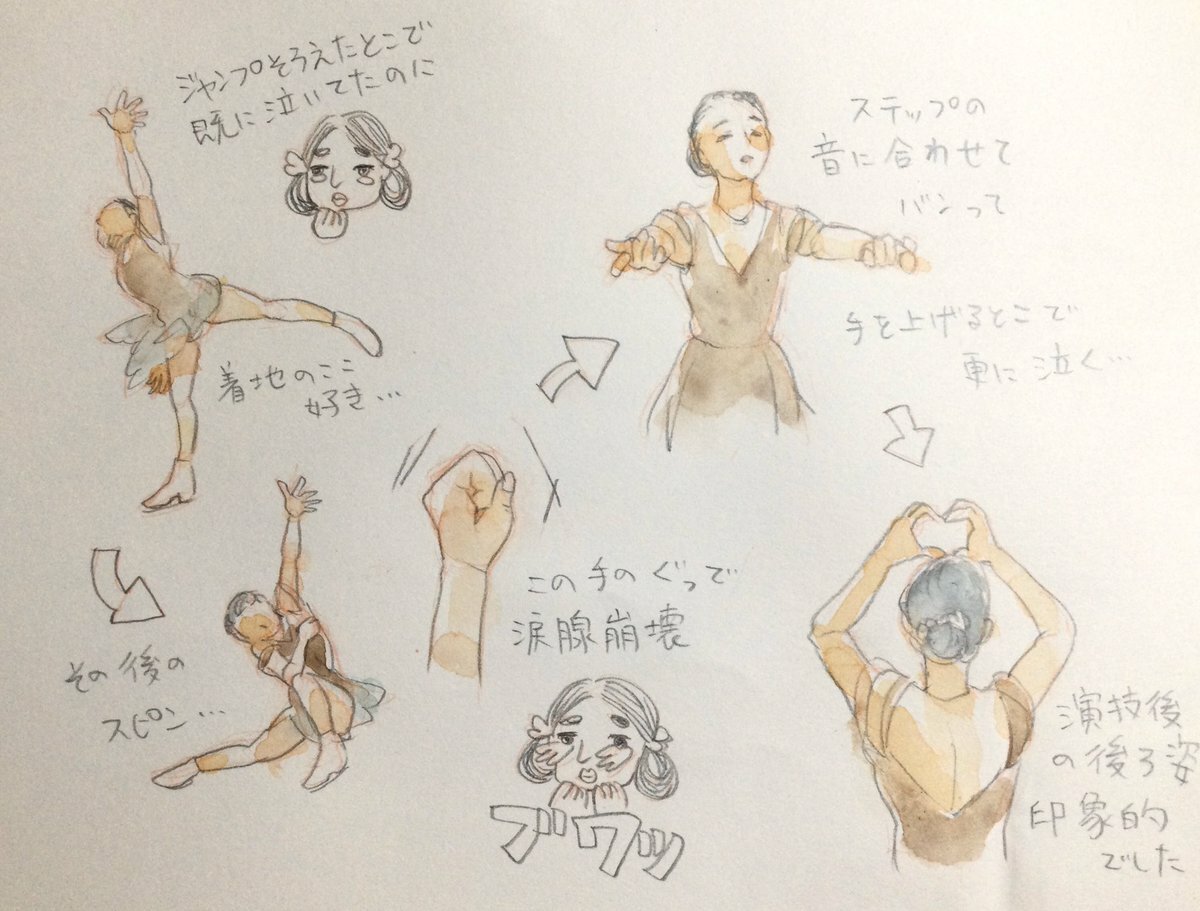 ジャンプそろえたとこで
既に泣いてたのに
着地のここ
好き…
その後の
スピン…
この手のぐっで
涙腺崩壊
ブワッ
ステップの
音に合わせて
バンって
手を上げるとこで
更に泣く…
演技後
の後ろ姿
印象的
でした